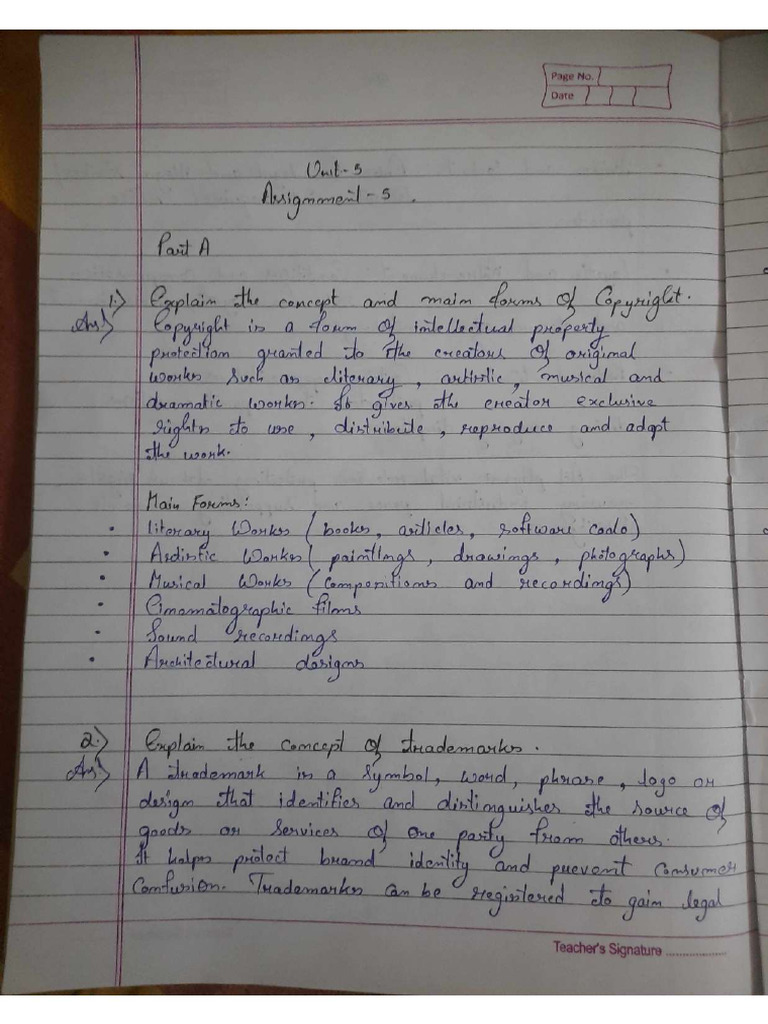 Page No.
Date
Unit-5
Assignment-5.
Part A
1.) Explain the concept and main forms of Copyright.
Ans) Copyright is a form of intellectual property
protection granted to the creators of original
works such as literary, artistic, musical and
dramatic works. It gives the creator exclusive
rights to use, distribute, reproduce and adapt
the work.
Main Forms:
• Literary Works (books, articles, software code)
• Artistic Works (paintings, drawings, photographs)
• Musical Works (compositions and recordings)
• Cinematographic films
• Sound recordings
• Architectural designs
2.) Explain the concept of trademarks.
Ans) A trademark is a symbol, word, phrase, logo or
design that identifies and distinguishes the source of
goods or services of one party from others.
It helps protect brand identity and prevent consumer
confusion. Trademarks can be registered to gain legal
Teacher's Signature ................